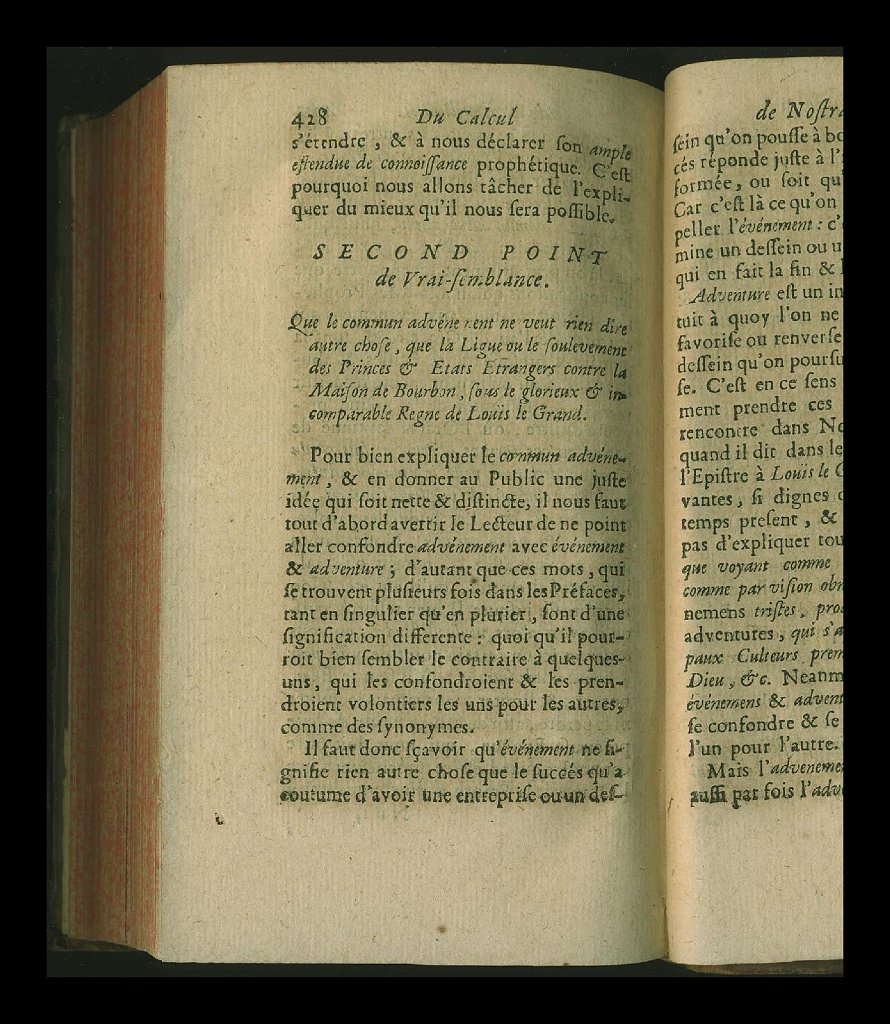 428 Du Calcul
s'étendre, & à nous déclarer son ample
estendue de connoissance prophétique. C'est
pourquoi nous allons tâcher de l'expli-
quer du mieux qu'il nous sera possible.
SECOND POINT
de Vrai-semblance.
Que le commun advénement ne veut rien dire
autre chose, que la Ligue ou le soulevement
des Princes & Etats Etrangers contre la
Maison de Bourbon, sous le glorieux & in-
comparable Regne de Louis le Grand.
Pour bien expliquer le commun advéne-
ment, & en donner au Public une juste
idée qui soit nette & distincte, il nous faut
tout d'abord avertir le Lecteur de ne point
aller confondre advénement avec événement
& adventure; d'autant que ces mots, qui
se trouvent plusieurs fois dans les Préfaces,
tant en singulier qu'en plurier, sont d'une
signification differente: quoi qu'il pour-
roit bien sembler le contraire à quelques-
uns, qui les confondroient & les pren-
droient volontiers les uns pour les autres,
comme des synonymes.
Il faut donc sçavoir qu'événement ne si-
gnifie rien autre chose que le succés qu'a
coutume d'avoir une entreprise ou un des-
de Nostra
sein qu'on pousse à bo
cés réponde juste à l'
formée, ou soit qu
Car c'est là ce qu'on
peller l'événement: c'
mine un dessein ou u
qui en fait la fin &
Adventure est un in
tuit à quoy l'on ne
favorise ou renverse
dessein qu'on poursu
se. C'est en ce sens
ment prendre ces
rencontre dans No
quand il dit dans le
l'Epistre à Louis le G
vantes, si dignes
temps present, &
pas d'expliquer tou
que voyant comme
comme par vision obn
nemens tristes, pro
adventures, qui s'a
paux Culteurs prem
Dieu, &c. Neanm
événemens & advent
se confondre & se
l'un pour l'autre.
Mais l'adveneme
aussi par fois l'adv